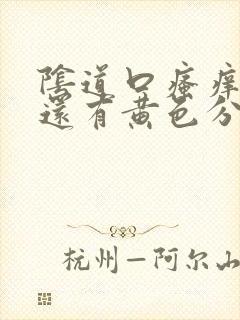 陰道口瘙痒
還有黄色分
杭州—阿尔山